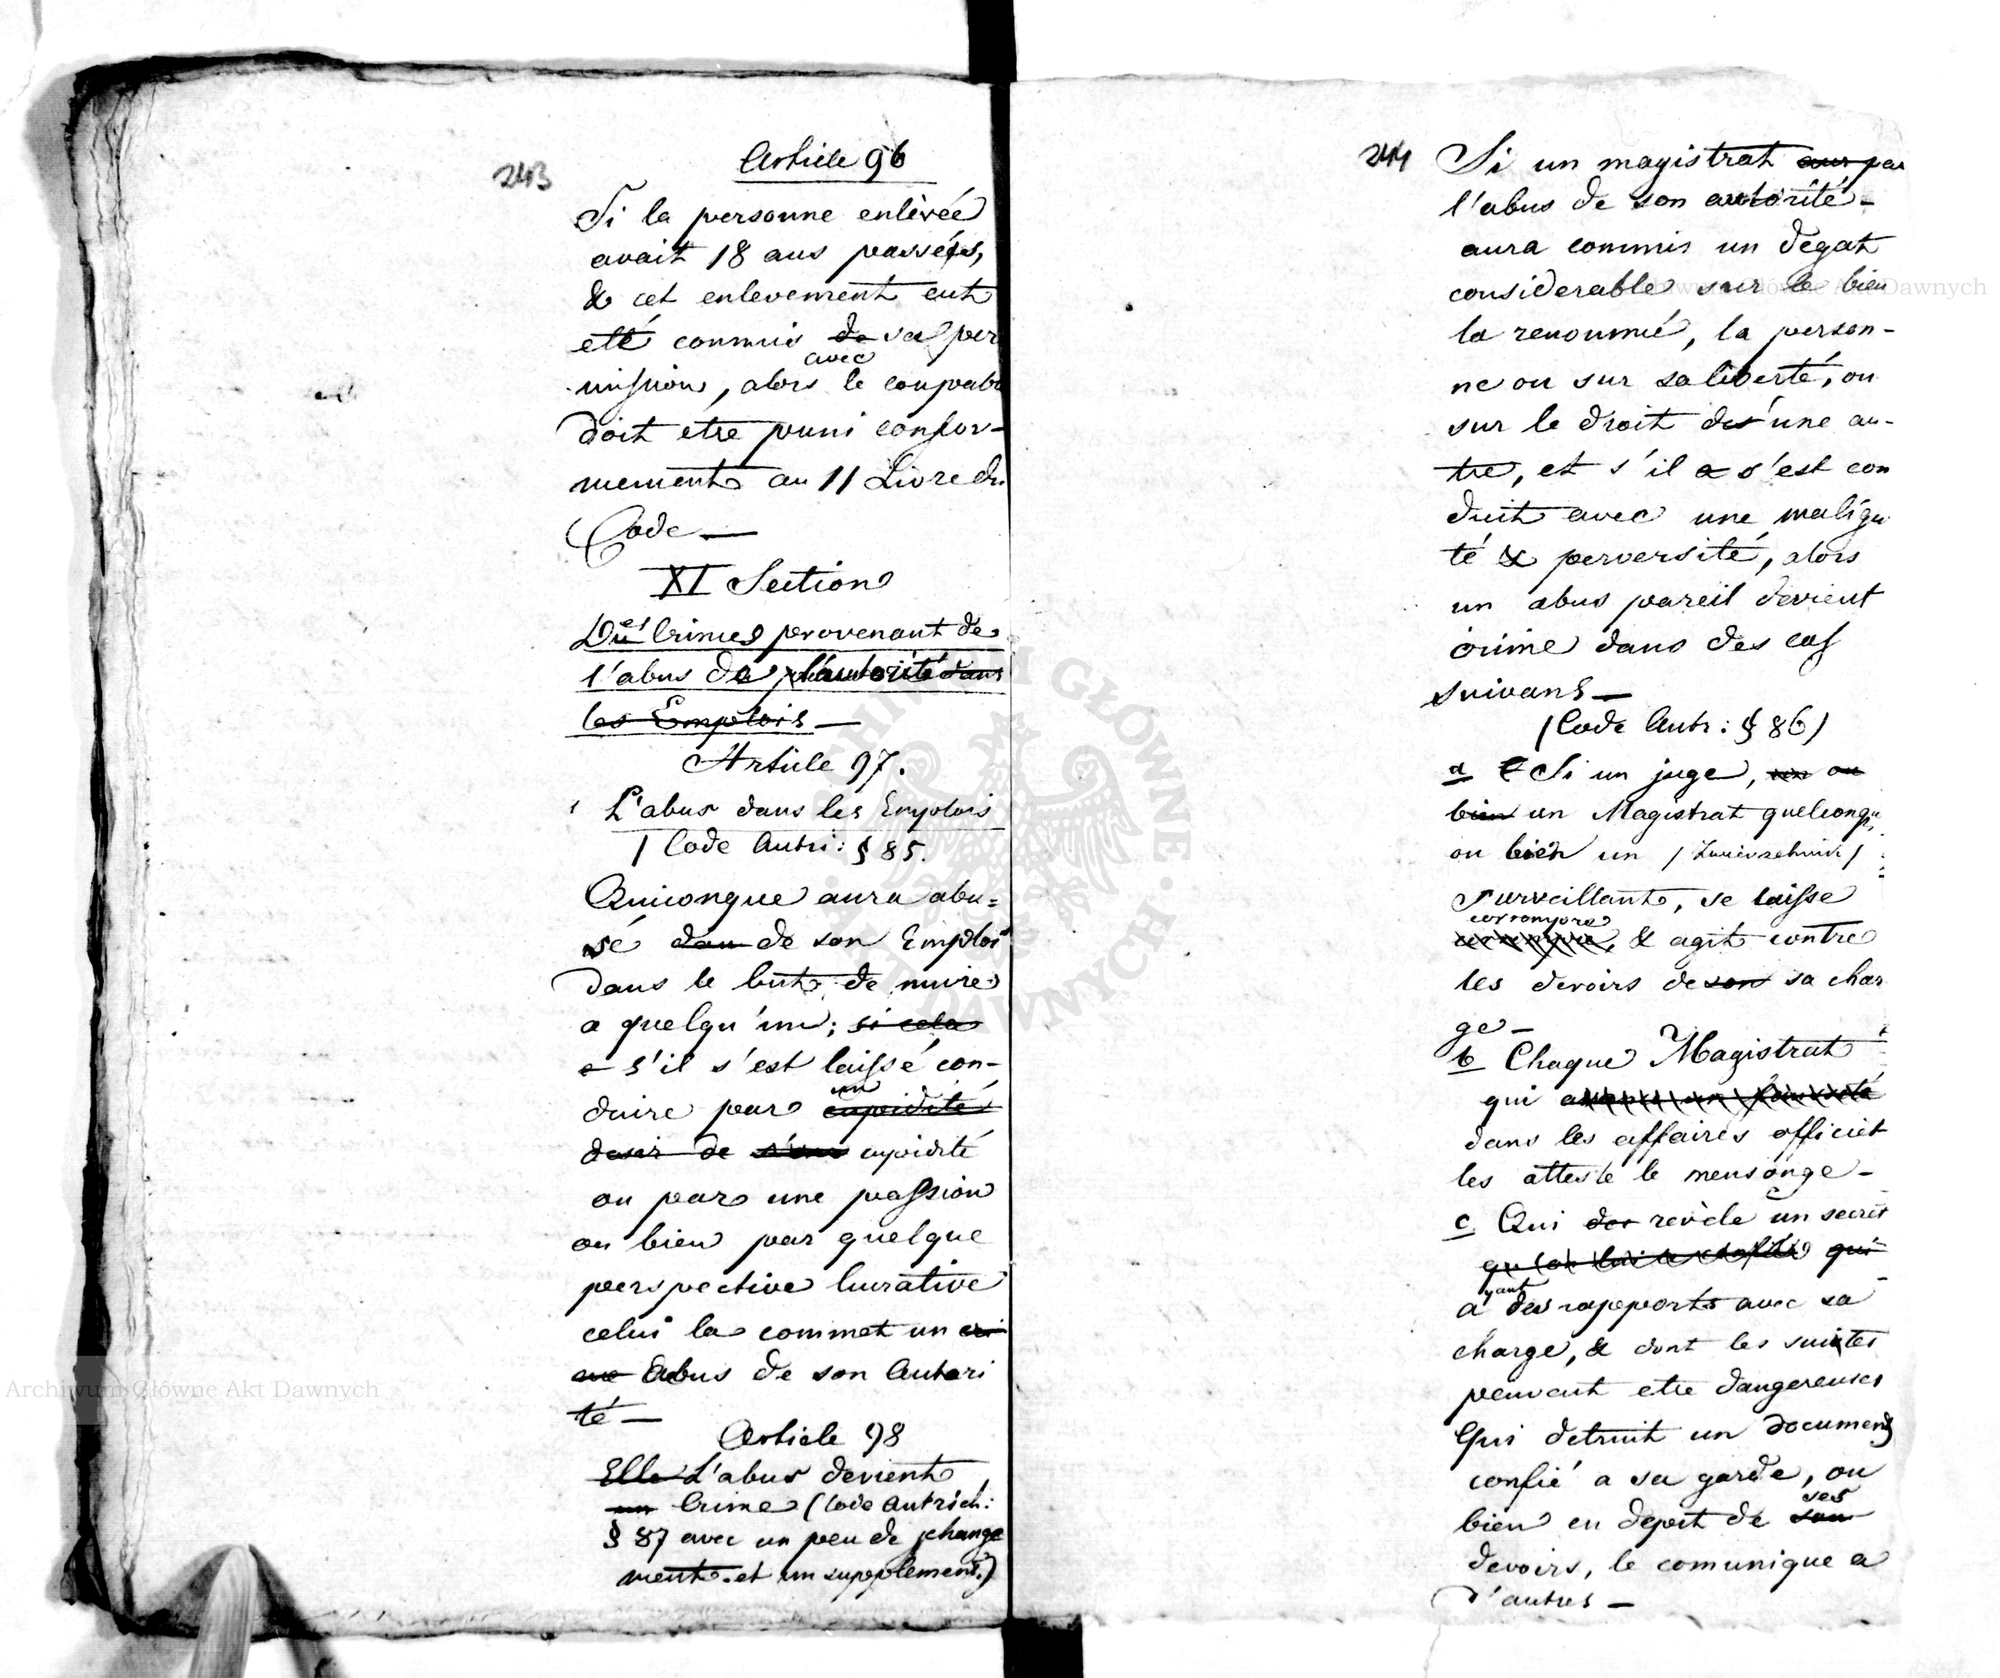 243
Article 96
Si la personne enlévée
avait 18 ans passées,
& cet enlevement eut
eté commis de sa per
avec
mission, alors le coupabl
doit etre puni confor-
mement au 11 Livre du
Code —
XI Section
Des Crimes provenant de
l'abus de l'autorité dans
les Emplois —
Article 97.
L'abus dans les Emplois
/ Code Autri: § 85.
Quiconque aura abu=
sé dan de son Emploi
dans le but de nuire
a quelqu'un; si cela
e s'il s'est laissé con-
duire par cupidité
un
desir de cupidité
ou par une passion
ou bien par quelque
perspective lucrative
celui la commet un cri
me Abus de son Autori
té —
Article 98
Elle L'abus devient
un Crime (Code Autrich:
§ 87 avec un peu de change
ment et un supplement.)
244
Si un magistrat aur par
l'abus de son autorité -
aura commis un dégat
considerable sur le bien
la renommé, la person-
ne ou sur sa liberté, ou
sur le droit des d'une au-
tre, et s'il a s'est con
duit avec une maligni
té & perversité, alors
un abus pareil devient
crime dans des cas
suivans —
/ Code Autr: § 86 /
a Si un juge, un ou
bien un Magistrat quelconqu
ou bien un
surveillant, se laisse
corrompre
corrompre, & agit contre
les devoirs de son sa char
ge —
b Chaque Magistrat
qui
dans les affaires officiel
les atteste le mensonge -
c Qui des revèle un secret
qu'on lui a confié qui
yant
a des rapports avec sa
charge, & dont les suites
peuvent etre dangereuses
Qui detruit un document
confié a sa garde, ou
ses
bien en depit de son
devoirs, le comunique a
d'autres —
ARCHIWUM GŁÓWNE AKT DAWNYCH
Archiwum Główne Akt Dawnych
Archiwum Główne Akt Dawnych